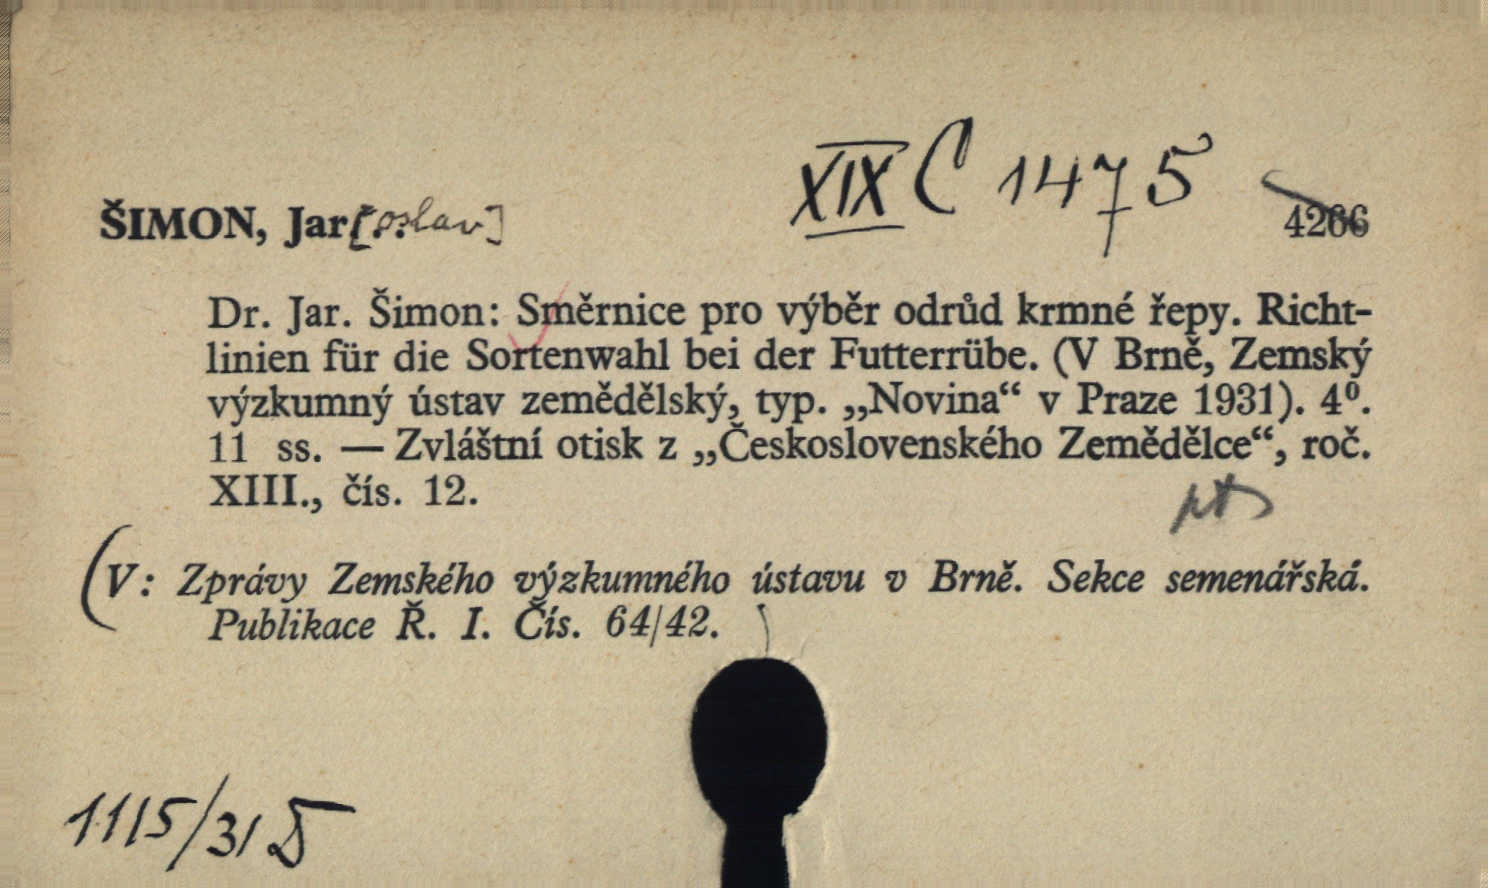 XIX C 1475
ŠIMON, Jar[oslav] 4266
Dr. Jar. Šimon: Směrnice pro výběr odrůd krmné řepy. Richt-
linien für die Sortenwahl bei der Futterrübe. (V Brně, Zemský
výzkumný ústav zemědělský, typ. „Novina“ v Praze 1931). 4⁰.
11 ss. — Zvláštní otisk z „Československého Zemědělce“, roč.
XIII., čís. 12.
(V: Zprávy Zemského výzkumného ústavu v Brně. Sekce semenářská.
Publikace Ř. I. Čís. 64/42.
1115/31